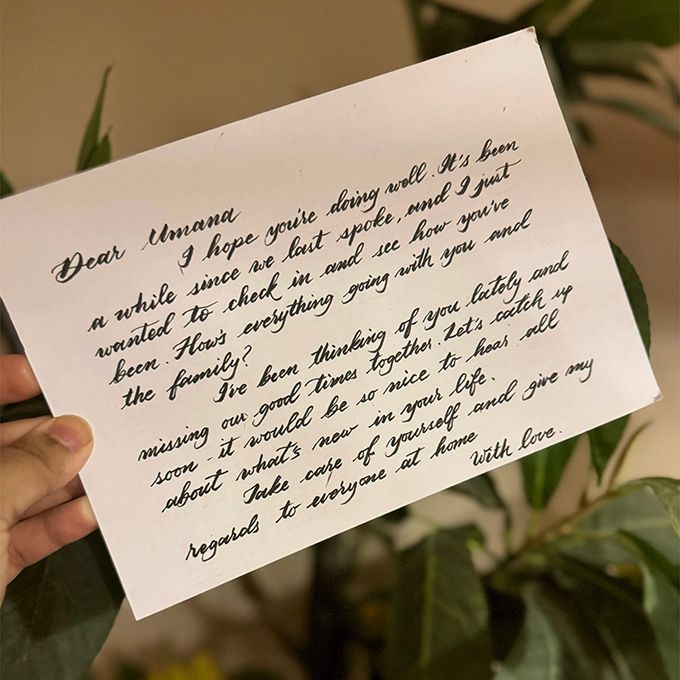 Dear Umana
I hope you're doing well. It's been
a while since we last spoke, and I just
wanted to check in and see how you've
been. How's everything going with you and
the family?
I've been thinking of you lately and
missing our good times together. Let's catch up
soon - it would be so nice to hear all
about what's new in your life.
Take care of yourself and give my
regards to everyone at home
With love.